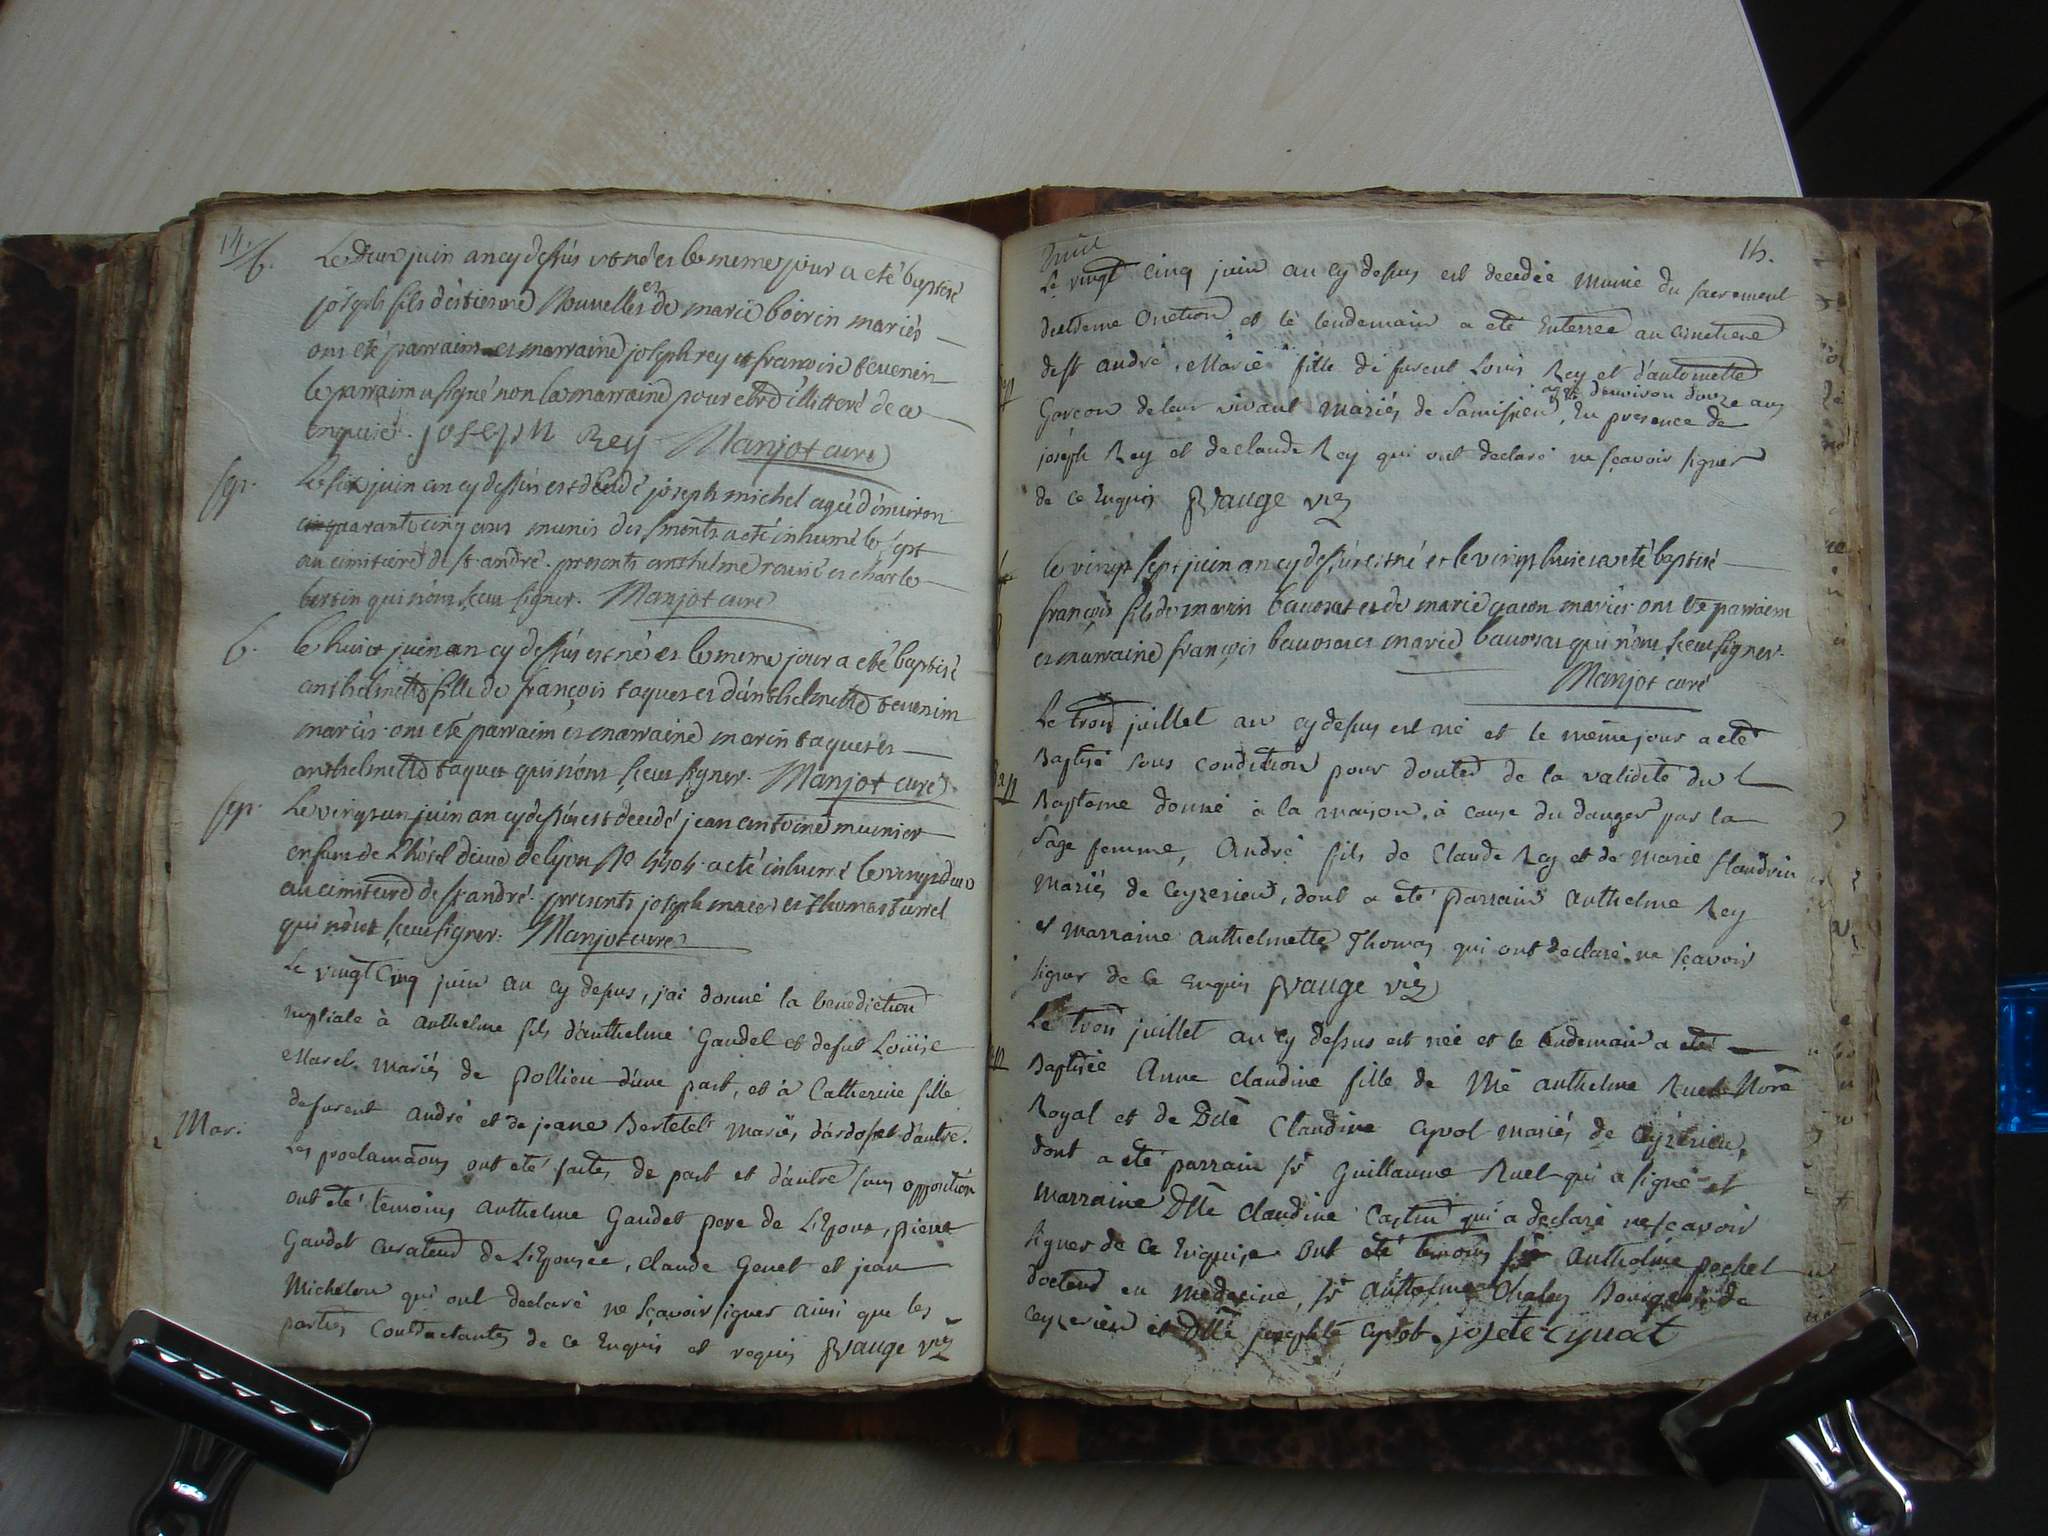 14.
b. Le deux juin an cy dessus est né et le meme jour a eté baptisé
joseph fils d'estienne Nouvelles et de marie boirin mariés
ont eté parrain et marraine joseph rey et francoise tevenin
le parrain a signé non la marraine pour etre illitteré de ce
enquise. joseph Rey Manjot curé
sep. Le six juin an cy dessus est decedé joseph michel agé d'environ
quarante cinq ans munis des sments a eté inhumé le sept
au cimitiere de st andré. presents anthelme et charle
bertin qui n'ont sceu signer. Manjot curé
b. le huit juin an cy dessus est né et le meme jour a eté baptisé
anthelmette fille de françois taquet et d'anthelmette tevenin
mariés. ont eté parrain et marraine marin taquet et
anthelmette taquet qui n'ont sceu signer. Manjot curé
sep. Le vingt un juin an cy dessus est decedé jean antoine munier
enfant de l'hotel dieu de lyon No 4404. a eté inhumé le vingt deux
au cimitiere de st andré. presents joseph et thomas turrel
qui n'ont sceu signer. Manjot curé
Le vingt Cinq juin an cy dessus, j'ai donné la benediction
nuptiale à anthelme fils d'anthelme Gaudet et de fut Louise
Marel mariés de pollieu d'une part, et à Catherine fille
de furent andré et de jeane Bertetet mariés, d'ardoset d'autre.
Mar. Les proclamaõns ont eté faites de part et d'autre sans opposition
ont eté temoins anthelme Gaudet pere de L'Epoux, pierre
Gaudet curateur de L'Epousée, claude Genet et jean
Michelon qui ont declaré ne sçavoir signer ainsi que les
parties Contractantes de ce Enquis et requis Vauge vic
15.
Le vingt cinq juin an cy dessus est decedée munie du sacrement
d'extreme Onction et le lendemain a eté Enterrée au cimetiere
de st andré, Marie fille de furent Louis Rey et d'antoinette
agée d'environ douze ans
Garçon de leur vivant mariés de . En presence de
joseph Rey et de claude Rey qui ont declaré ne sçavoir signer
de ce Enquis Vauge vic
le vingt sept juin an cy dessus est né et le vingt huit a eté baptisé
françois fils de marin bavosat et de marie gacon mariés. ont eté parrain
et marraine françois bavosat et marie bavosat qui n'ont sceu signer.
Manjot curé
Le trois juillet an cy dessus est né et le même jour a eté
Baptisé sous condition pour doute de la validité du
Baptême donné à la maison, à cause du danger par la
sage femme, André fils de Claude Rey et de Marie flandrin
mariés de Ceyzerieu, dont a eté parrain anthelme Rey
et marraine anthelmette Thomas qui ont declaré ne sçavoir
signer de ce Enquis Vauge vic
Le trois juillet an cy dessus est née et le lendemain a eté
Baptisée Anne claudine fille de Me anthelme Ruel Nore
Royal et de Dlle Claudine Cyvot mariés de Ceyzerieu,
dont a eté parrain sr Guillaume Ruel qui a signé et
marraine Dlle claudine Castin qui a declaré ne sçavoir
signer de ce Enquise ont eté temoins sr anthelme pochet
docteur en medecine, sr anthelme Chaley Bourgeois de
Ceyzerieu et Dlle josephte Cyvot. josete cyvot